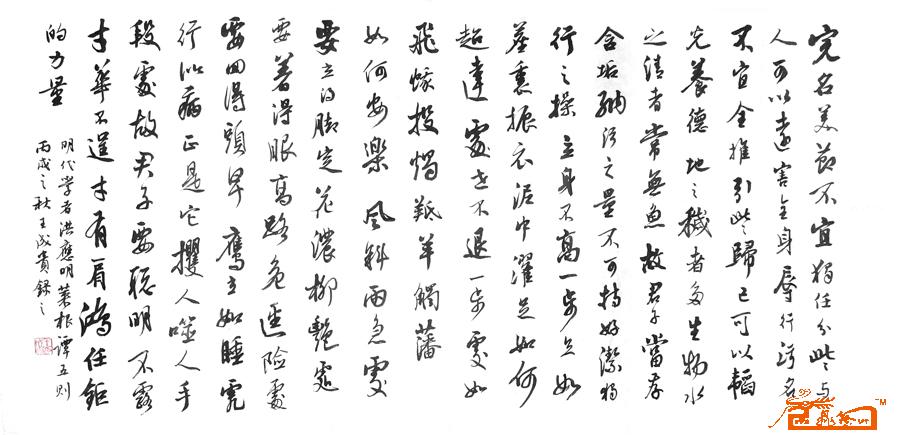 完名美節不宜獨任分些與
人可以遠害全身辱行污名
不宜全推引些歸己可以韜
光養德地之穢者多生物水
之清者常無魚故君子當存
含垢納污之量不可持好潔獨
行之操立身不高一步立如
塵裏振衣泥中濯足如何
超達處世不退一步處如
飛蛾投燭羝羊觸藩
如何安樂風斜雨急處
要立得腳定花濃柳艷處
要著得眼高路危逕險處
要回得頭早鷹立如睡虎
行似病正是它攫人噬人手
段處故君子要聰明不露
才華不逞才有肩鴻任鉅
的力量
明代学者洪應明菜根譚五則
丙戌之秋王成貴錄之